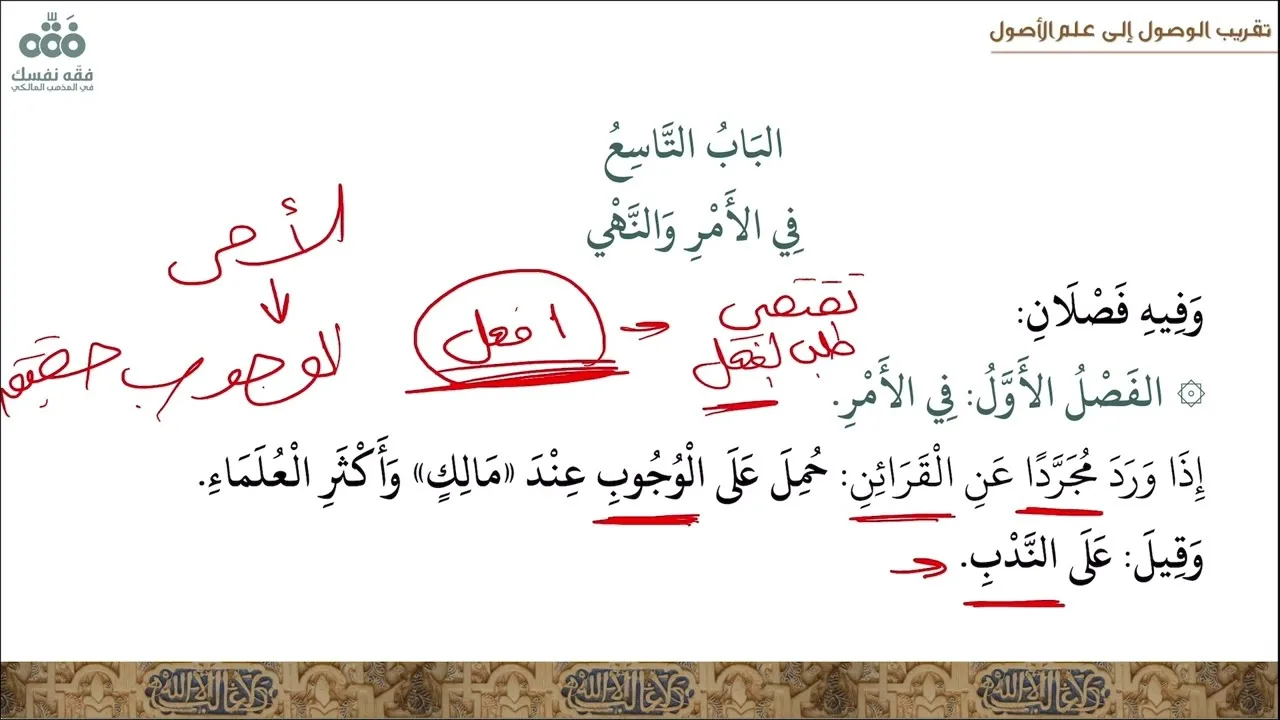 تقريب الوصول إلى علم الأصول
فقه نفسك
في المذهب المالكي
البَابُ التَّاسِعُ
فِي الأَمْرِ وَالنَّهْيِ
وَفِيهِ فَصْلَانِ:
الفَصْلُ الأَوَّلُ: فِي الأَمْرِ.
إِذَا وَرَدَ مُجَرَّدًا عَنِ الْقَرَائِنِ: حُمِلَ عَلَى الْوُجُوبِ عِنْدَ «مَالِكٍ» وَأَكْثَرِ الْعُلَمَاءِ.
وَقِيلَ: عَلَى النَّدْبِ.
افعل
تقتضي
طلب الفعل
للوجوب حقيقة
ولا غالب إلا الله
ولا غالب إلا الله
ولا غالب إلا الله